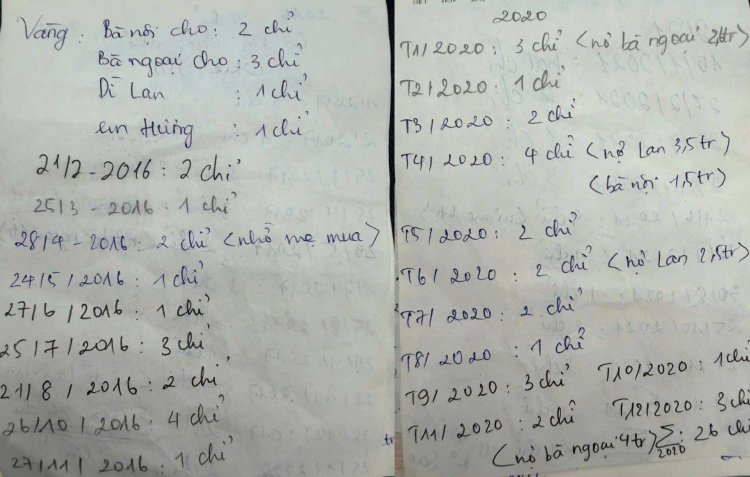 Vàng: Bà nội cho: 2 chỉ
Bà ngoại cho: 3 chỉ
Dì Lan : 1 chỉ
em Hương : 1 chỉ
21/2-2016: 2 chỉ
25/3-2016: 1 chỉ
28/4-2016: 2 chỉ (nhờ mẹ mua)
24/5/2016: 1 chỉ
27/6/2016: 1 chỉ
25/7/2016: 3 chỉ
21/8/2016: 2 chỉ
26/10/2016: 4 chỉ
27/11/2016: 1 chỉ
2020
T1/2020: 3 chỉ (nợ bà ngoại
T2/2020: 1 chỉ
T3/2020: 2 chỉ
T4/2020: 4 chỉ (nợ Lan 3,5tr)
(bà nội 1,5tr)
T5/2020: 2 chỉ
T6/2020: 2 chỉ (nợ Lan 2,5tr)
T7/2020: 2 chỉ
T8/2020: 1 chỉ
T9/2020: 3 chỉ T10/2020: 1 chỉ
T11/2020: 2 chỉ T12/2020: 3 chỉ
(nợ bà ngoại 4tr) Σ2020: 26 chỉ